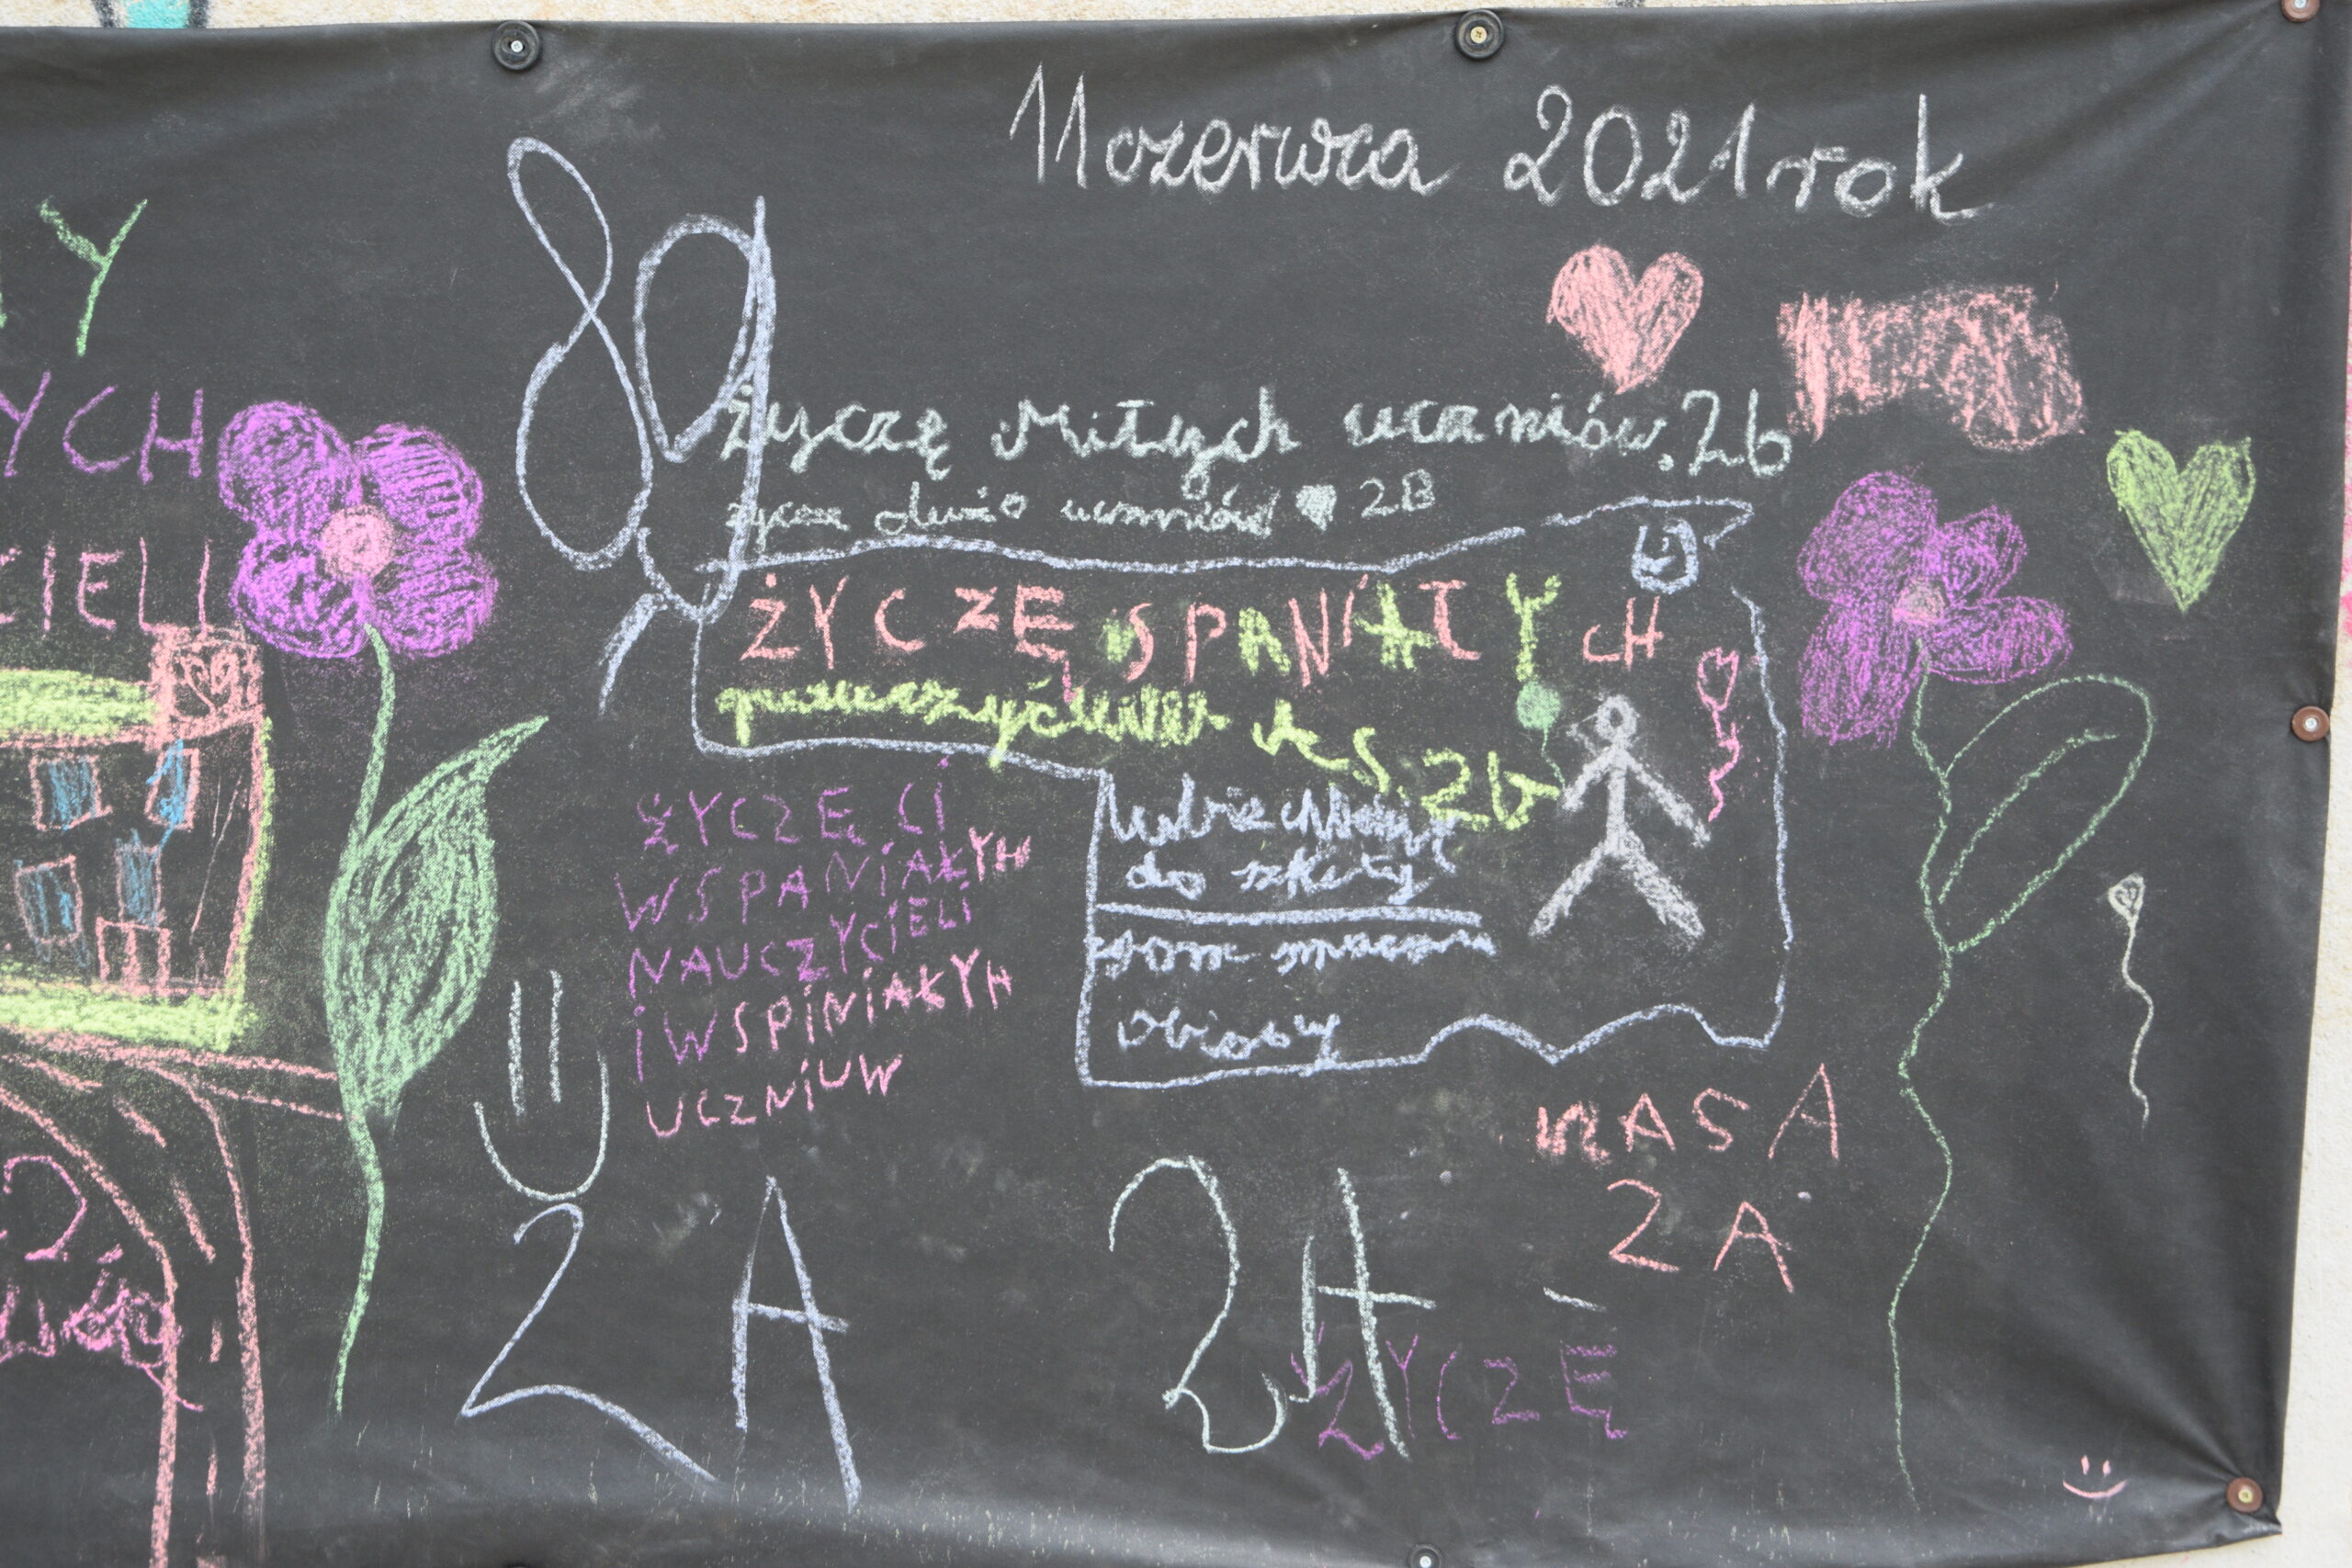 11 czerwca 2021 rok
Y
YCH
CIELI
życzę miłych uczniów. 2b
życze dużo uczniów 2B
ŻYCZĘ WSPANIAŁYCH
2b
do szkoły
ŻYCZĘ CI
WSPANIAŁYH
NAUCZYCIELI
i WSPINIAŁYH
UCZNIUW
obiady
KLASA
2A
2A
2A
ŻYCZĘ